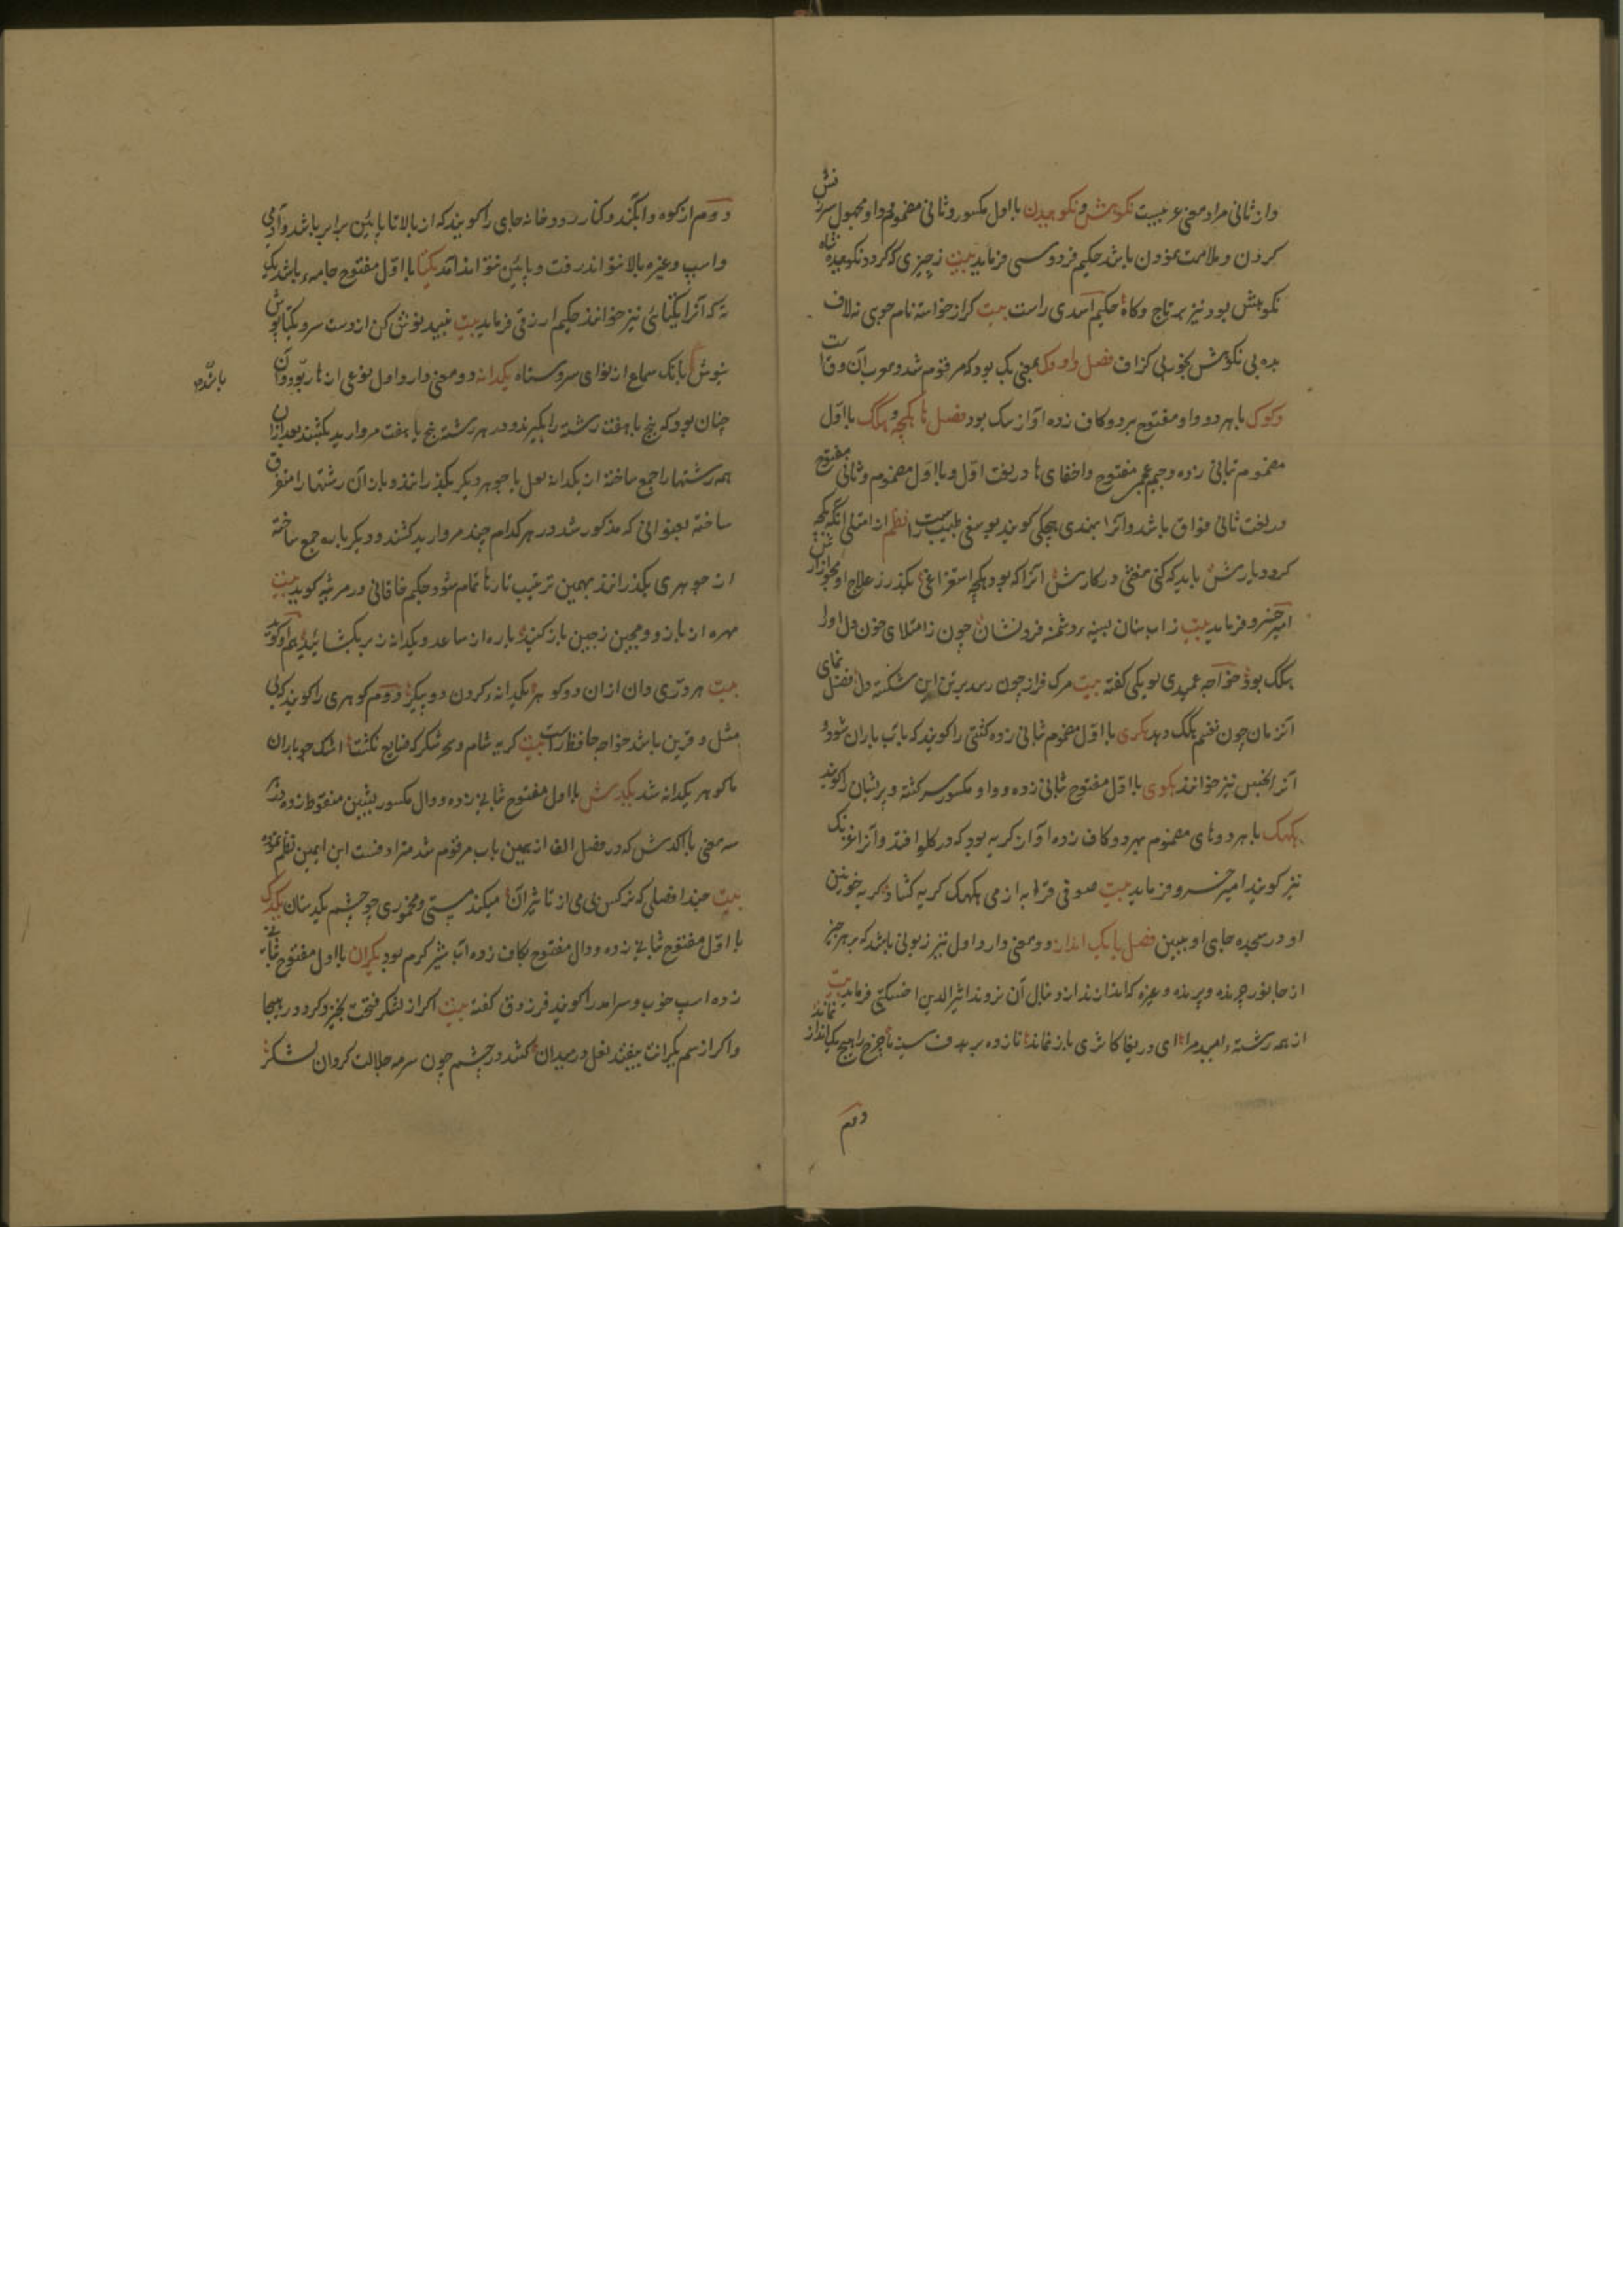 وازثانی مراد معنی عربیست نکوهش و نکوهیدن بااول مکسور وثانی مضموم و واو مجهول سرزنش
کردن و ملامت نمودن باشد حکیم فردوسی فرماید بیت زچیزی که کردد نکوهیده شاه
نکوهش بود نیز بر تاج و کاه حکیم اسدی راست بیت کراز خواسته نام جوی نه لاف
بده بی نکوهش بخور بی کزاف فصل واو وک بمعنی بک بود که مرقوم شد و معرب آن وق است
وکوک باهر دو واو مفتوح بردو کاف زده آواز سک بود فصل ها هکچه و هکک بااول
مضموم بثانی زده وجیم عجمی مفتوح واخفای ها در لغت اول و بااول مضموم وثانی مفتوح
در لغت ثانی فواق باشد وآنرا بهندی هچکی کویند یوسفی طبیب راست نظم از امتلی آنکه هکچه
کردد یارش باید که کنی بقی در کارش آنرا که بود هکچه استفراغی بکذر زعلاج او
امیر خسرو فرماید بیت زاب سنان بسینهٔ دشمن فرونشان چون زامتلای خون دل او را
هکک بود خواجه عمیدی لویکی کفته بیت مرک فراز چون رسد برتن این شکسته دل فضل نمای
آنزمان چون نفسم هکک دهد هکری بااول مضموم ثانی زده کشتی را کویند که بآب باران شود و
آنرا بخس نیز خوانند هکوی بااول مفتوح ثانی زده و واو مکسور سرکشته و پریشان را کویند
هکهک باهر دوهای مضموم بهردو کاف زده آواز کریه بود که در کلو افتد وآنرا غرنک
نیز کویند امیر خسرو فرماید بیت صوفی قرابه از می هکهک کریه کشاد کریه خونین
او در سجده جای او ببین فصل یا یک انداز دو معنی دارد اول تیر زبونی باشد که بر هر چیز
از جانور چرنده و پرنده و غیره که اندازند از دنبال آن نروند اثیرالدین اخسیکتی فرماید بیت
از همه رشتهٔ امید مرا ای دریغا کاثری باز نماند تا زده بر هدف سینهٔ ما چرخ را هیچ یکانداز نماند
دویم
دویم از کوه و آبکند و کنار رودخانه جای را کویند که از بالا تا پایین برابر باشد وآدمی
واسپ و غیره بالا نتواند رفت و پایین نتواند آمد یکتا بااول مفتوح جامه باشد یک
ته که آنرا یکتائی نیز خوانند حکیم ازرقی فرماید بیت نبید نوش کن از دست سرو یکتا پوش
نیوش بانک سماع از نوای سروستاه یکدانه دو معنی دارد اول نوعی از هار بود وآن
چنان بود که پنج یا هفت رشته را بکیرند و در هر رشته پنج یا هفت مروارید بکشند بعد ازان
همه رشتها را جمع ساخته از یکدانه لعل یا جوهر دیکر بکذرانند و باز آن رشتها را متفرق
ساخته بعنوانی که مذکور شد در هر کدام چند مروارید کشند و دیکر باره جمع ساخته
از جوهری بکذرانند بهمین ترتیب تا رها تمام شود حکیم خاقانی در مرثیه کوید بیت
مهره از بازو و معجز زجبین باز کنید یاره از ساعد و یکدانه زبر بکشائید هم او کوید
بیت هر دری دان ازان دو کوهر یکدانه کردن دو پیکر دویم کوهری را کویند که بی
مثل و قرین باشد خواجه حافظ راست بیت کریه شام و سحر شکر که ضایع نکشت اشک چو باران
ما کوهر یکدانه شد یکدش بااول مفتوح ثانی زده و دال مکسور بشین منقوط زده
سه معنی با اکدش که در فصل الف از همین باب مرقوم شد مترادفست ابن یمین نظم نموده
بیت حبذا فصلی که نرکس بی می از تاثیر آن میکند مستی و مخموری چو چشم یکدشان یکدک
بااول مفتوح ثانی زده و دال مفتوح بکاف زده آب شیر کرم بود یکران بااول مفتوح ثانی
زده اسپ خوب و سرآمد را کویند فرزدق کفته بیت اکر از لشکر فتحت بخیزد کرد در هیجا
واکر از سم یکرانت بیفتد نعل در میدان کشد در چشم چون سرمه جلالت کرد آن لشکر